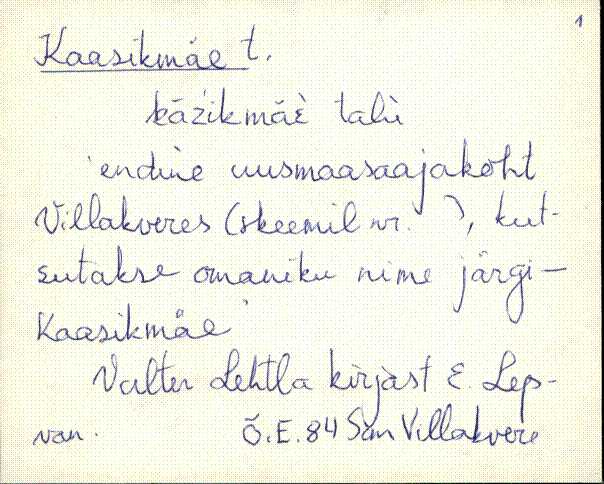 1
Kaasikmäe t.
kāźikmäè talù
'endine uusmaasaajakoht
Villakveres (skeemil nr. ), kut-
sutakse omaniku nime järgi —
Kaasikmäe'
Valter Lehtla kirjast E. Leps-
Õ.E. 84 Sim Villakvere